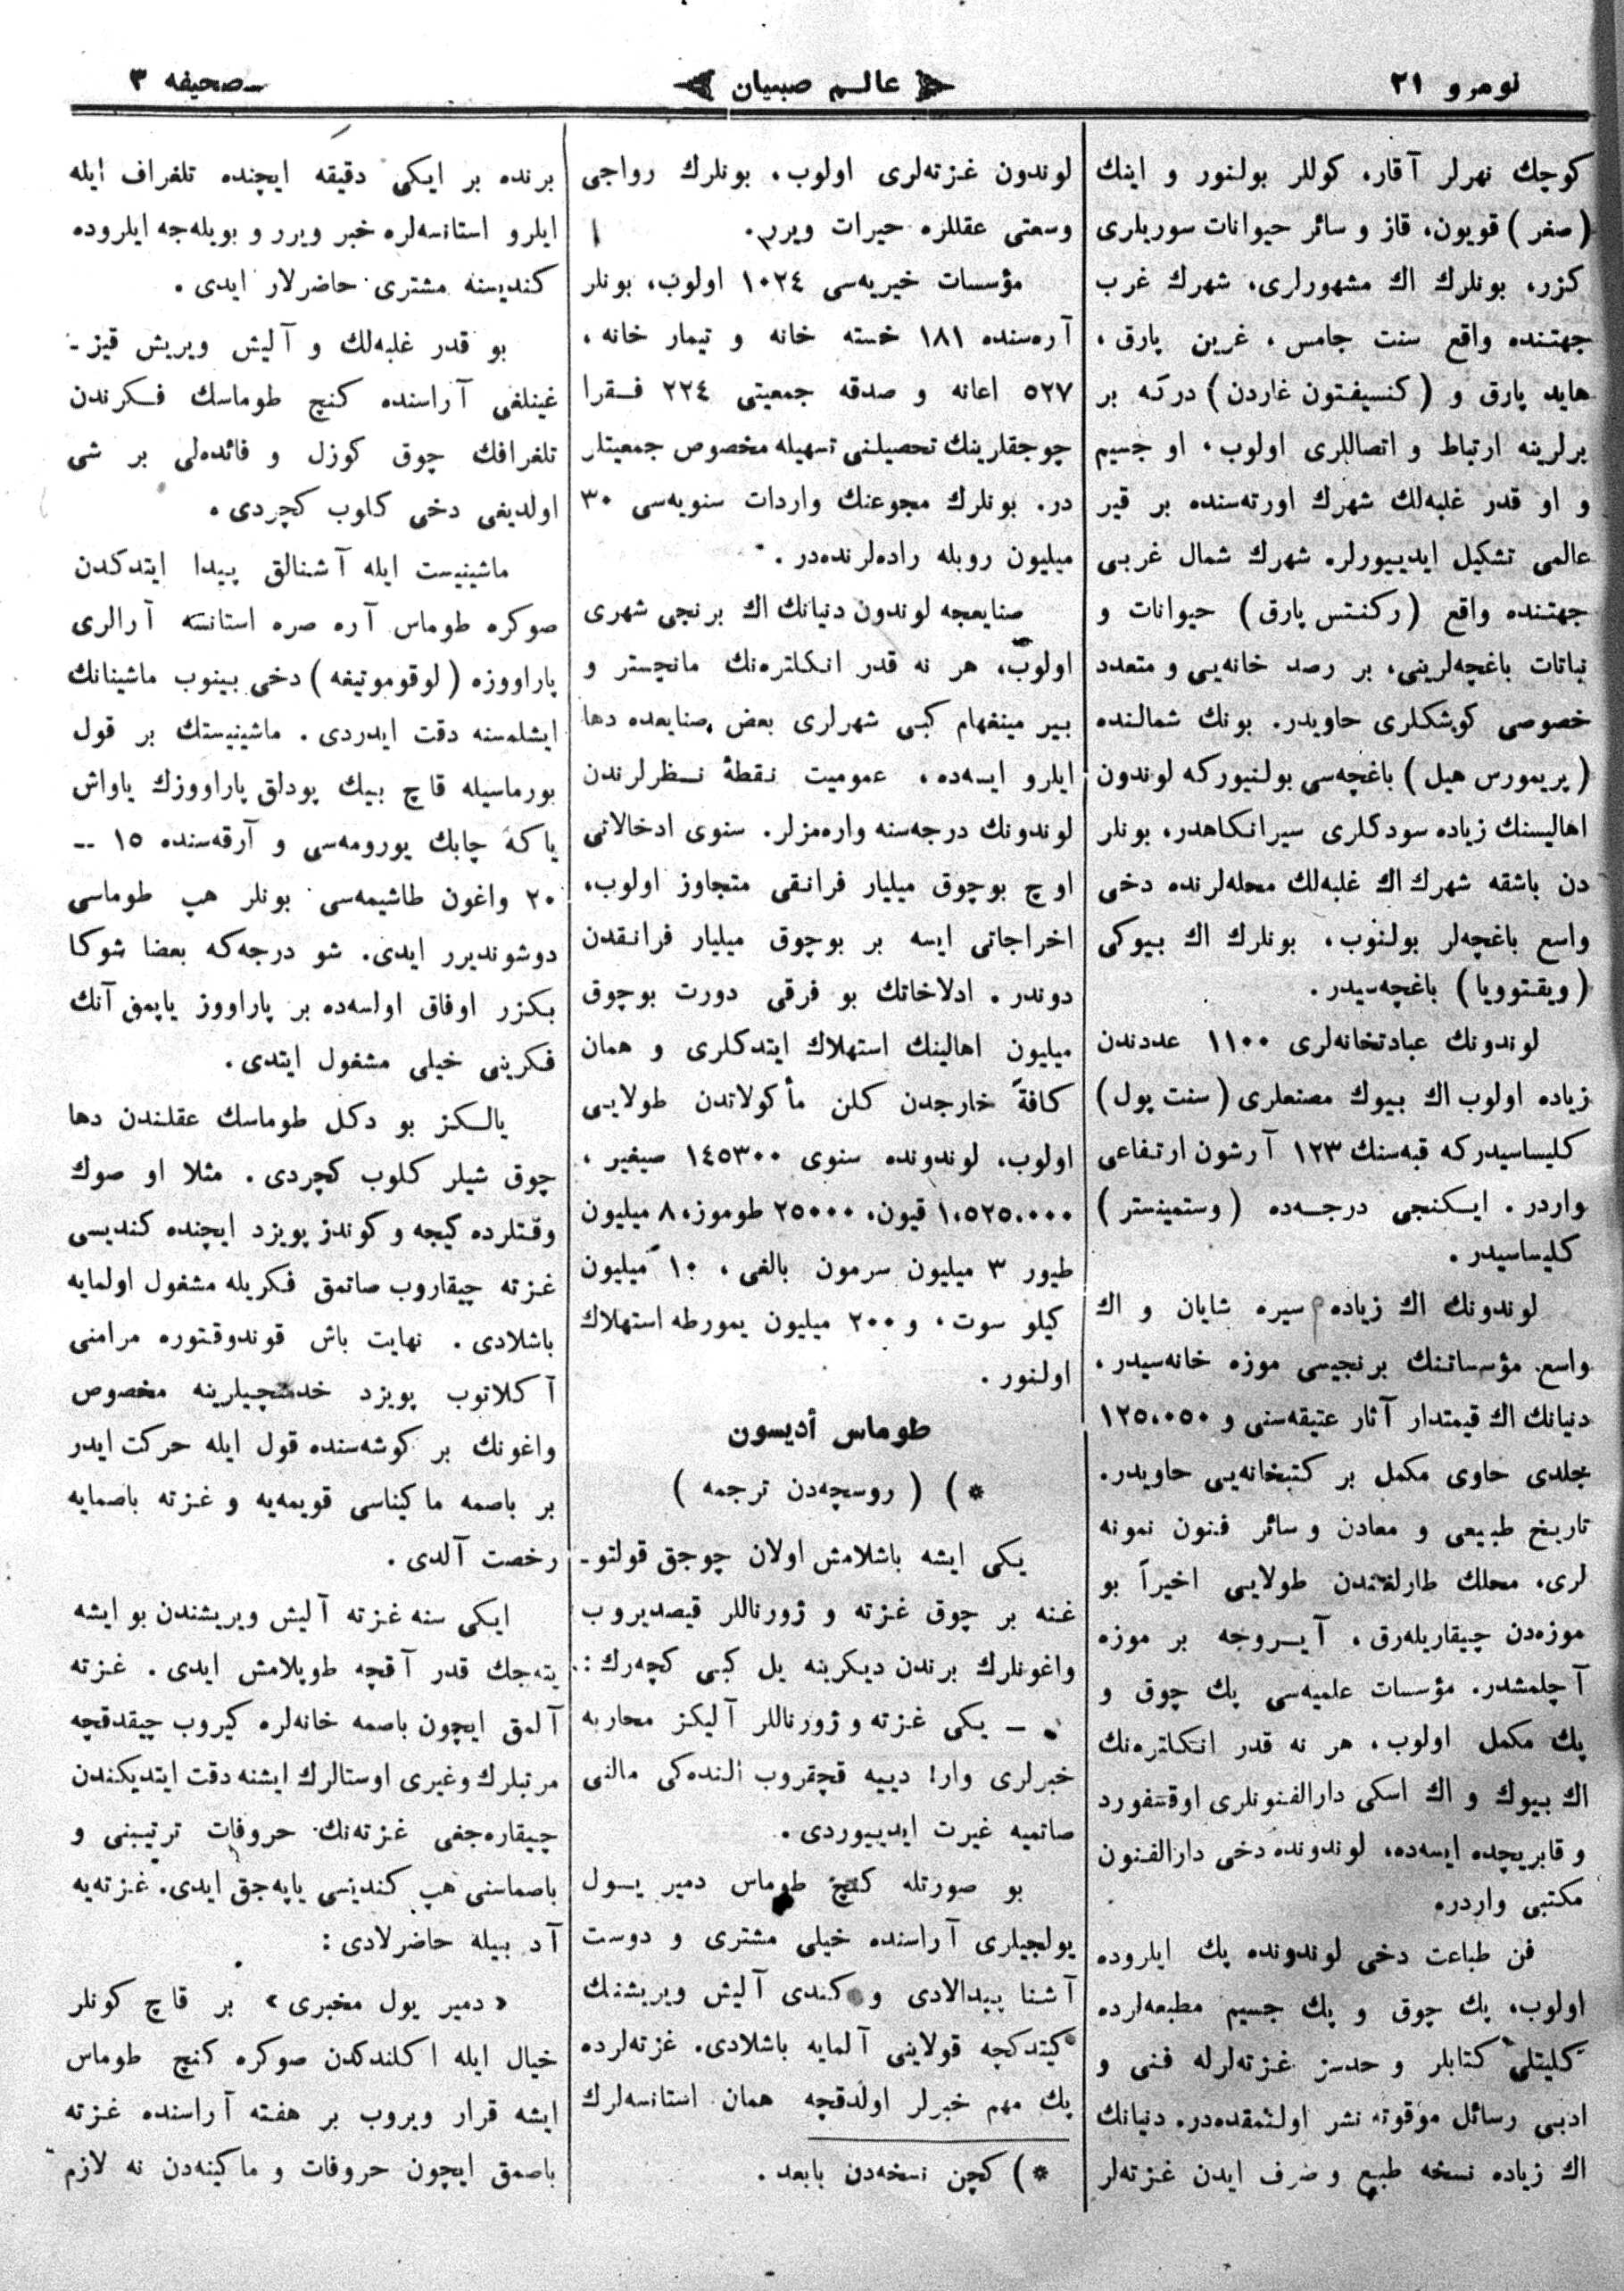 نومرو ٢١
عالم صبيان
صحيفه ٣
كوچك نهرلر آقار، كوللر بولنور و اينك
(صغر) قويون، قاز و سائر حيوانات سوريلرى
كزر، بونلرك اك مشهورلرى، شهرك غرب
جهتنده واقع سنت جامس، غرين پارق،
هايد پارق و (كنسيفتون غاردن) دركه بر
برلرينه ارتباط و اتصاللرى اولوب، او جسيم
و او قدر غلبه‌لك شهرك اورته‌سنده بر قير
عالمى تشكيل ايدييورلر. شهرك شمال غربى
جهتنده واقع (ركنتس پارق) حيوانات و
نباتات باغچه‌لرينى، بر رصد خانه‌يى و متعدد
خصوصى كوشكلرى حاويدر. بونك شمالنده
(پريمورس هيل) باغچه‌سى بولنيوركه لوندون
اهاليسنك زياده سودكلرى سيرانكاهدر، بونلر
دن باشقه شهرك اك غلبه‌لك محله‌لرنده دخى
واسع باغچه‌لر بولنوب، بونلرك اك بيوكى
(ويقتوويا) باغچه‌سيدر.
لوندونك عبادتخانه‌لرى ١١٠٠ عددندن
زياده اولوب اك بيوك مصنعلرى (سنت پول)
كليساسيدركه قبه‌سنك ١٢٣ آرشون ارتفاعى
واردر. ايكنجى درجه‌ده (وستمينستر)
كليساسيدر.
لوندونك اك زياده سيره شايان و اك
واسع مؤسساتنك برنجيسى موزه خانه‌سيدر،
دنيانك اك قيمتدار آثار عتيقه‌سنى و ١٢٥،٠٥٠
جلدى حاوى مكمل بر كتبخانه‌يى حاويدر.
تاريخ طبيعى و معادن و سائر فنون نمونه
لرى، محلك طارلغندن طولايى اخيراً بو
موزه‌دن چيقاريله‌رق، آيروجه بر موزه
آچلمشدر. مؤسسات علميه‌سى پك چوق و
پك مكمل اولوب، هر نه قدر انكلتره‌نك
اك بيوك و اك اسكى دارالفنونلرى اوقتفورد
و قابريچده ايسه‌ده، لوندونده دخى دارالفنون
مكتبى واردر.
فن طباعت دخى لوندونده پك ايلروده
اولوب، پك چوق و پك جسيم مطبعه‌لرده
كليتلى كتابلر و حدسز غزته‌لرله فنى و
ادبى رسائل موقوته نشر اولنمقده‌در. دنيانك
اك زياده نسخه طبع و صرف ايدن غزته‌لر
لوندون غزته‌لرى اولوب، بونلرك رواجى
وسعتى عقللره حيرات ويرر.
مؤسسات خيريه‌سى ١٠٢٤ اولوب، بونلر
آره‌سنده ١٨١ خسته خانه و تيمار خانه،
٥٢٧ اعانه و صدقه جمعيتى ٢٢٤ فقرا
چوجقلرينك تحصيلنى تسهيله مخصوص جمعيتلر
در. بونلرك مجوعنك واردات سنويه‌سى ٣٠
ميليون روبله راده‌لرنده‌در.
صنايعجه لوندون دنيانك اك برنجى شهرى
اولوب، هر نه قدر انكلتره‌نك مانچستر و
بير مينغهام كبى شهرلرى بعض صنايعده دها
ايلرو ايسه‌ده، عموميت نقطهٔ نظرلرندن
لوندونك درجه‌سنه واره‌مزلر. سنوى ادخالاتى
اوچ بوچوق ميليار فرانقى متجاوز اولوب،
اخراجاتى ايسه بر بوچوق ميليار فرانقدن
دوندر. ادلاخاتك بو فرقى دورت بوچوق
ميليون اهالينك استهلاك ايتدكلرى و همان
كافةً خارجدن كلن مأكولاتدن طولايى
اولوب، لوندونده سنوى ١٤٥٣٠٠ صيغير،
١،٥٢٥،٠٠٠ قيون، ٢٥٠٠٠ طوموز، ٨ ميليون
طيور ٣ ميليون سرمون بالغى، ١٠ ميليون
كيلو سوت، و ٢٠٠ ميليون يمورطه استهلاك
اولنور.
طوماس أديسون
*) (روسچه‌دن ترجمه)
يكى ايشه باشلامش اولان چوجق قولتو-
غنه بر چوق غزته و ژورناللر قيصديروب
واغونلرك برندن ديكرينه يل كبى كچه‌رك:
— يكى غزته و ژورناللر آليكز محاربه
خبرلرى وار! دييه قچقروب النده‌كى مالنى
صاتميه غيرت ايدييوردى.
بو صورتله كنج طوماس دمير يول
يولجيلرى آراسنده خيلى مشترى و دوست
آشنا پيدالادى و كندى آليش ويريشنك
كيتدكچه قولاينى آلمايه باشلادى. غزته‌لرده
پك مهم خبرلر اولدقچه همان استانسه‌لرك
*) كچن نسخه‌دن بابعد.
برنده بر ايكى دقيقه ايچنده تلغراف ايله
ايلرو استانسه‌لره خبر ويرر و بويله‌جه ايلروده
كنديسنه مشترى حاضرلار ايدى.
بو قدر غلبه‌لك و آليش ويريش قيز-
غينلغى آراسنده كنج طوماسك فكرندن
تلغرافك چوق كوزل و فائده‌لى بر شى
اولديغى دخى كلوب كچردى.
ماشينيست ايله آشنالق پيدا ايتدكدن
صوكره طوماس آره صره استانسه آرالرى
پاراووزه (لوقوموتيفه) دخى بينوب ماشينانك
ايشلمسنه دقت ايدردى. ماشينيستك بر قول
بورماسيله قاچ بيك پودلق پاراووزك ياواش
ياكه چابك يورومه‌سى و آرقه‌سنده ١٥ --
٢٠ واغون طاشيمه‌سى بونلر هپ طوماسى
دوشونديرر ايدى. شو درجه‌كه بعضا شوكا
بكزر اوفاق اولسه‌ده بر پاراووز ياپمق آنك
فكرينى خيلى مشغول ايتدى.
يالكز بو دكل طوماسك عقلندن دها
چوق شيلر كلوب كچردى. مثلا او صوك
وقتلرده كيجه و كوندز پويزد ايچنده كنديسى
غزته چيقاروب صاتمق فكريله مشغول اولمايه
باشلادى. نهايت باش قوندوقتوره مرامنى
آكلاتوب پويزد خدمتچيلرينه مخصوص
واغونك بر كوشه‌سنده قول ايله حركت ايدر
بر باصمه ماكيناسى قويمه‌يه و غزته باصمايه
رخصت آلدى.
ايكى سنه غزته آليش ويريشندن بو ايشه
يته‌جك قدر آقچه طوپلامش ايدى. غزته
آلمق ايچون باصمه خانه‌لره كيروب چيقدقچه
مرتبلرك وغيرى اوستالرك ايشنه دقت ايتديكندن
چيقاره‌جغى غزته‌نك حروفات ترتيبنى و
باصماسنى هپ كنديسى ياپه‌جق ايدى. غزته‌يه
آد بيله حاضرلادى:
«دمير يول مخبرى» بر قاچ كونلر
خيال ايله اكلندكدن صوكره كنج طوماس
ايشه قرار ويروب بر هفته آراسنده غزته
باصمق ايچون حروفات و ماكينه‌دن نه لازم